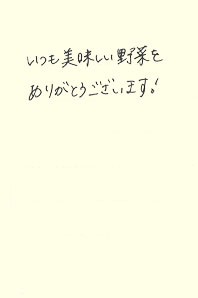 いつも美味しい野菜を
ありがとうございます!